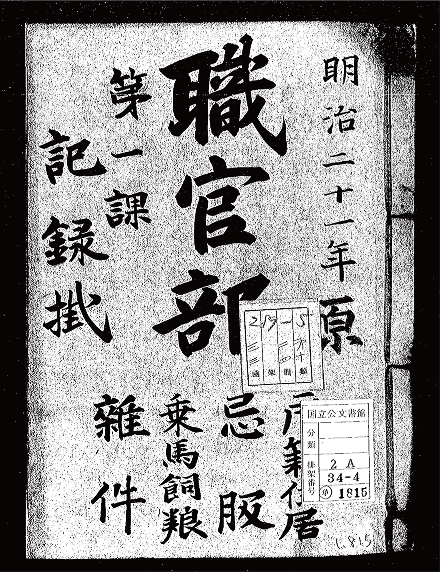 明治二十一年原
職官部
戸籍住居
忌服
乗馬飼粮
雑件
第一課
記録掛
国立公文書館
分類
排架番号
2 A
34-4
1815
1.815